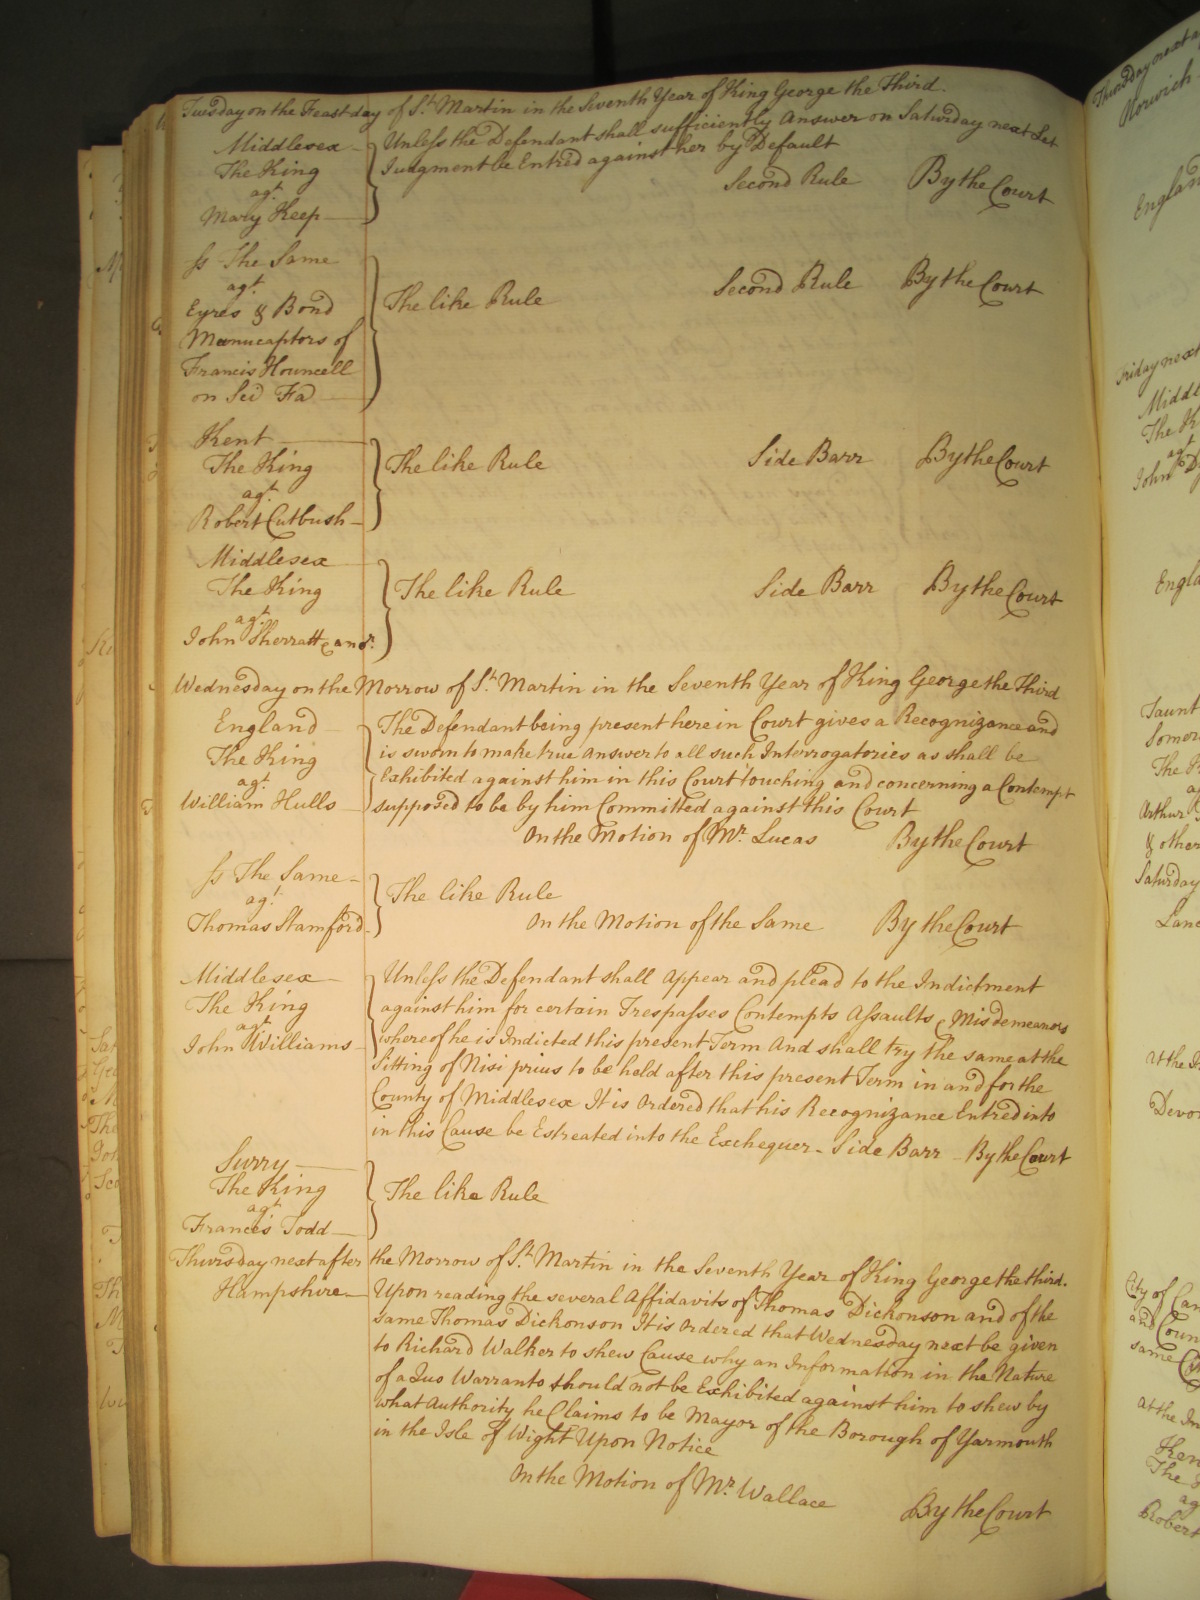 Tuesday on the Feast day of St. Martin in the Seventh Year of King George the Third.
Middlesex
The King
agt.
Mary Keep
Unless the Defendant shall sufficiently Answer on Saturday next Let
Judgment be Entred against her by Default
Second Rule By the Court
ss The Same
agt.
Eyres & Bond
Manucaptors of
Francis Hounsell
on Sci Fa
The like Rule Second Rule By the Court
Kent
The King
agt.
Robert Cutbush
The like Rule Side Barr By the Court
Middlesex
The King
agt.
John Sherratt & anor.
The like Rule Side Barr By the Court
Wednesday on the Morrow of St. Martin in the Seventh Year of King George the Third
England
The King
agt.
William Hulls
The Defendant being present here in Court gives a Recognizance and
is sworn to make true Answer to all such Interrogatories as shall be
Exhibited against him in this Court touching and concerning a Contempt
supposed to be by him Committed against this Court
On the Motion of Mr. Lucas By the Court
ss The Same
agt.
Thomas Stamford
The like Rule
On the Motion of the Same By the Court
Middlesex
The King
agt.
John Williams
Unless the Defendant shall Appear and plead to the Indictment
against him for certain Trespasses Contempts Assaults & Misdemeanors
whereof he is Indicted this present Term And shall try the same at the
Sitting of Nisi prius to be held after this present Term in and for the
County of Middlesex It is Ordered that his Recognizance Entred into
in this Cause be Estreated into the Exchequer - Side Barr - By the Court
Surry
The King
agt.
Francis Todd
The like Rule
Thursday next after the Morrow of St. Martin in the Seventh Year of King George the third.
Hampshire
Upon reading the several Affidavits of Thomas Dickonson and of the
same Thomas Dickonson It is Ordered that Wednesday next be given
to Richard Walker to shew Cause why an Information in the Nature
of a Quo Warranto should not be Exhibited against him to shew by
what Authority he Claims to be Mayor of the Borough of Yarmouth
in the Isle of Wight Upon Notice
On the Motion of Mr. Wallace By the Court
Thursday next
Norwich
England
Friday next
The
agt
John
The
Saturday
at the
City of
and Coun
same
at the
The
Robert